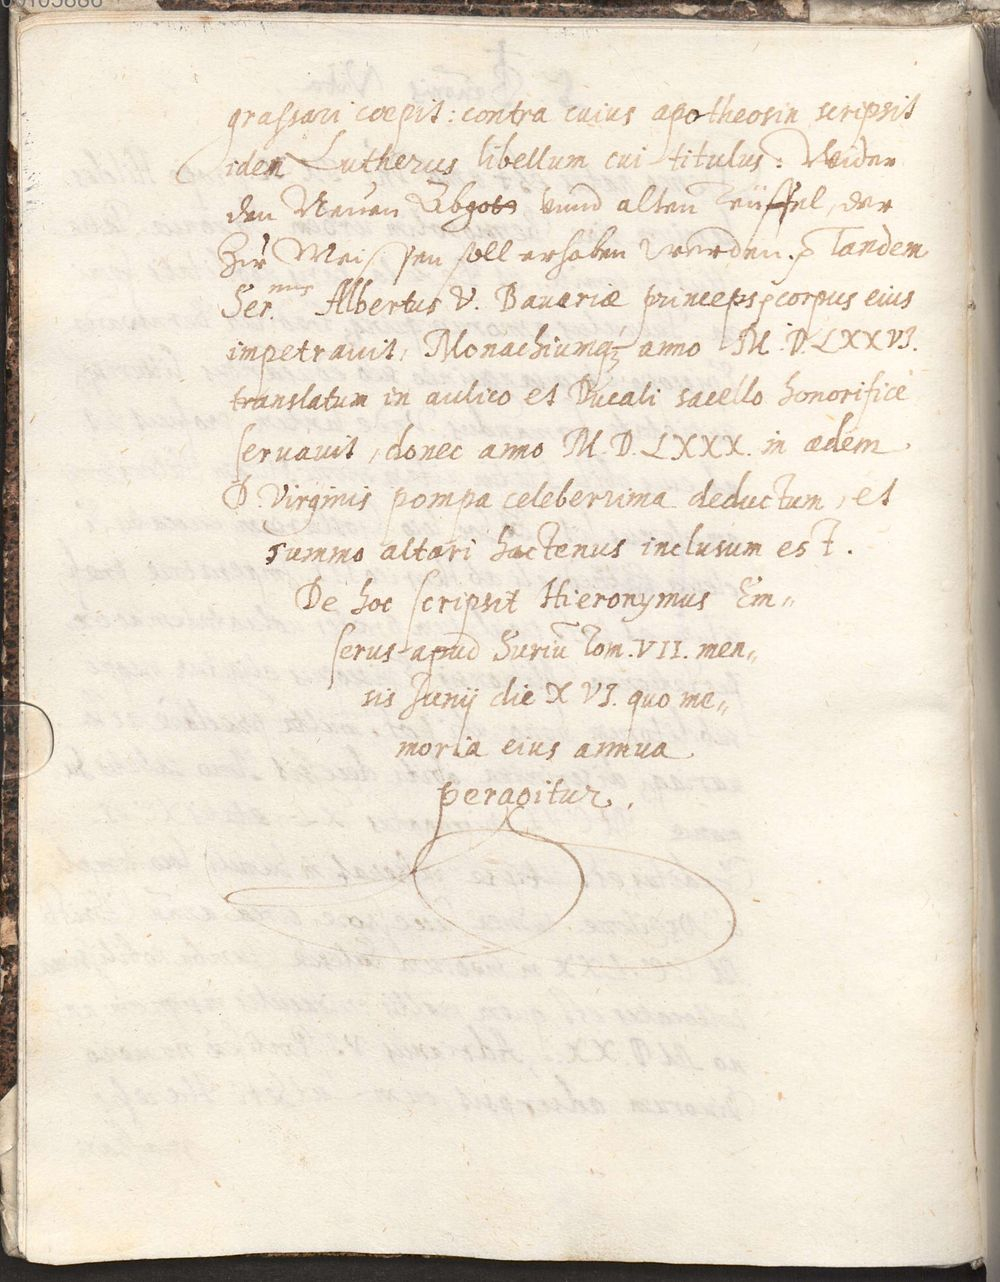 graſsari coepit: contra cuius apotheosin scripsit
idem Lutherus libellum cui titulus: Wider
den Neuen Abgott unnd alten Teüffel, der
Zur Meissen soll erhaben werden. Tandem
Ser.mus Albertus V. Bavariæ princeps corpus eius
impetravit, Monachiumqꝫ anno M.D.LXXVI.
translatum in aulico et Ducali sacello honorificè
ſervavit, donec anno M.D.LXXX. in ædem
D. Virginis pompa celeberrima deductum, et
summo altari hactenus inclusum est.
De hoc ſcripsit Hieronymus Em„
ſerus apud Suriū tom. VII. men„
sis Junij die XVI. quo me„
moria eius annua
peragitur.